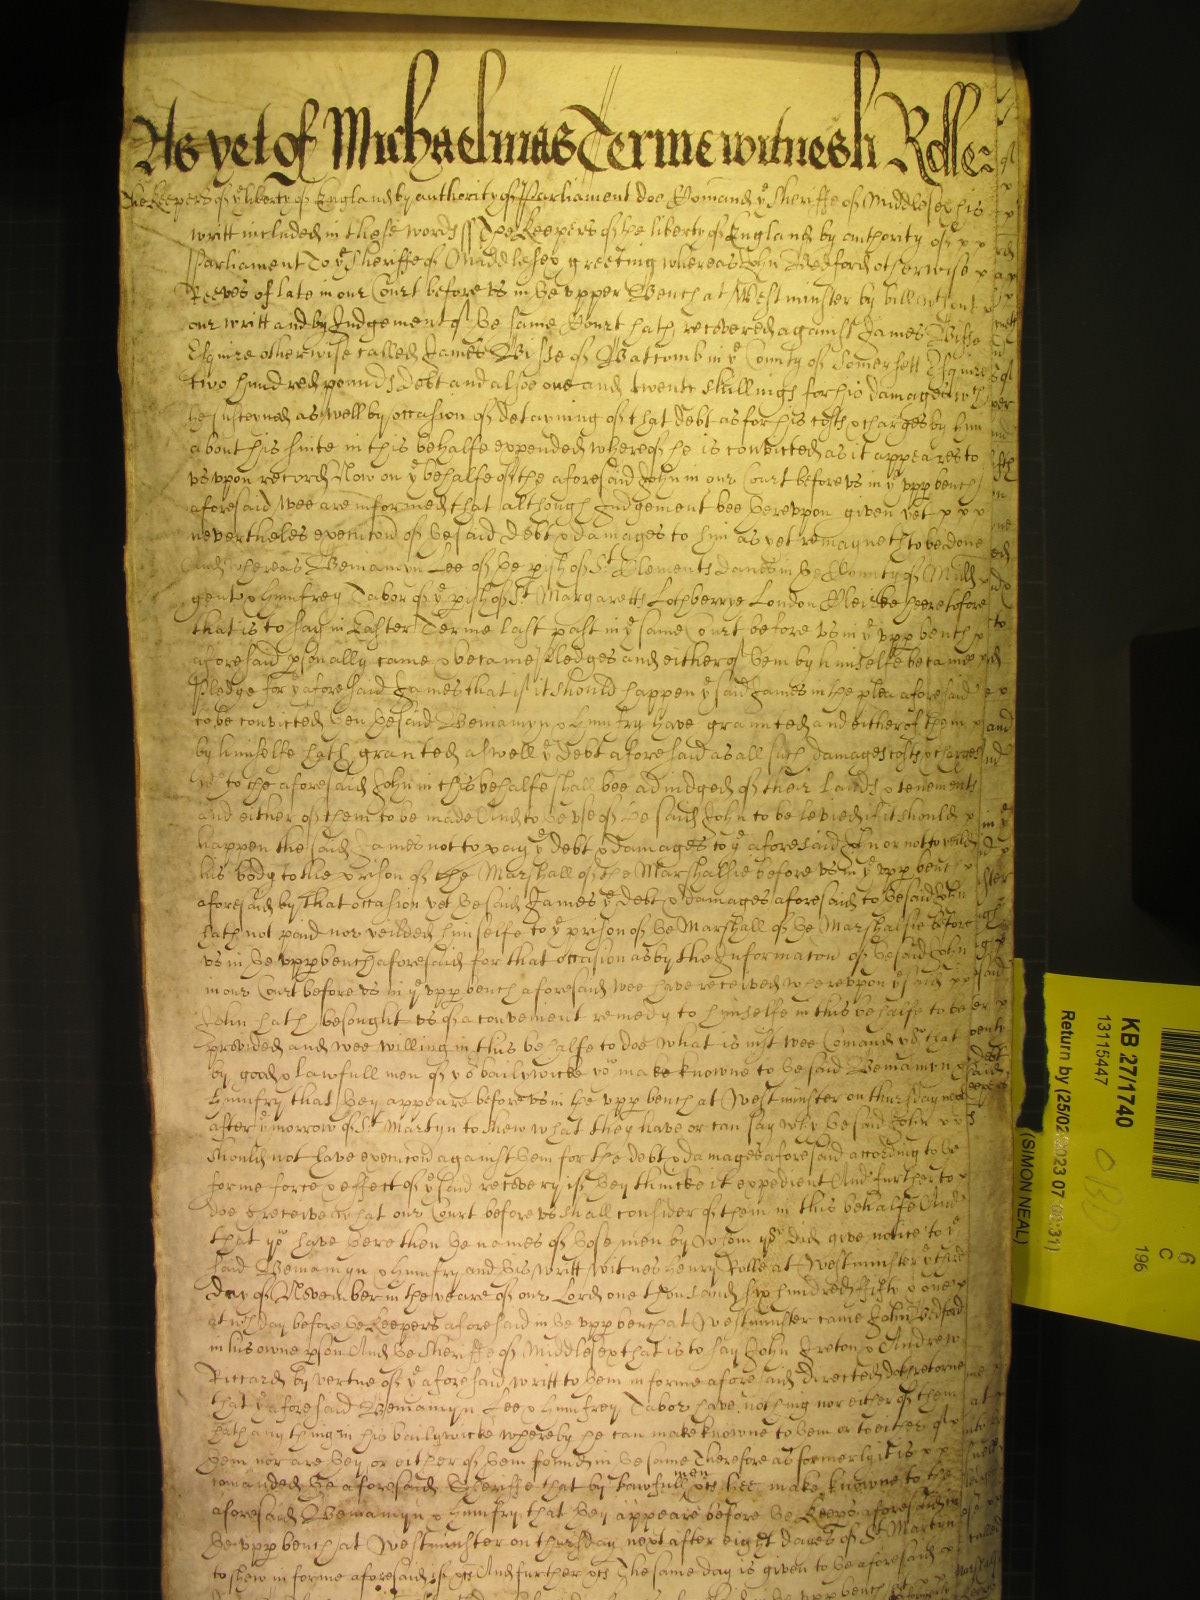 As yet of Michaelmas Terme witnesh Rolle
The Keepers of ye liberty of England by authority of Parliament doe Comand ye Sheriffe of Middlesex his
writt included in these words ss The Keepers of the liberty of England by authority of x x
Parliament To ye Sheriffe of Middlesex greeting whereas John Bedford otherwise x
Reeves of late in our Court before vs in ye vpper Bench at Westminster by bill wthout x
our writt and by Judgement of ye same Court hath recovered against James Wisse
Esquire otherwise called James Wisse of Batcomb in ye County of Somersett Esquire
two hundred pounds debt and alsoe one and twenty shillings for his damages wch
he susteyned as well by occasion of detayning of that debt as for his costs & charges by him
about his suite in this behalfe expended whereof he is convicted as it appeares to
vs vpon record Now on ye behalfe of the aforesaid John in our Court before vs in ye vpp bench
aforesaid wee are informed that although Judgement bee yerevpon given yet x x x
nevertheles execucon of ye said debt & damages to him as yet remayneth to be done
And whereas Beniamyn Lee of ye pish of St Clements Danes in ye County of Midd x
gent & Humfrey Tabor of ye pish of St Margaretts Lothberrye London Clerke heretofore
that is to say in Easter Terme last past in ye same Court before vs in ye vpp bench x
aforesaid psonally came & became Pledges and either of yem by himselfe became
Pledge for ye aforesaid James that if it should happen ye said James in the plea aforesaid
to be convicted yen ye said Beniamyn & Humfry have graunted and either of them x
by himselfe hath granted aswell ye debt aforesaid as all such damages costs & charges
wch to the aforesaid John in this behalfe shall bee adiudged of their lands & tenements
and either of them to be made And to ye vse of ye said John to be levied if it should x
happen the said James not to pay ye debt & damages to ye aforesaid John or not to yeild
his body to the prison of the Marshall of the Marshalsie before vs in ye vpp bench x
aforesaid by that occasion yet ye said James ye debt & damages aforesaid to ye said John
hath not paid nor yeilded himselfe to ye prison of ye Marshall of ye Marshalsie before
vs in ye vpp bench aforesaid for that occasion as by the Informacon of ye said John
in our Court before vs in ye vpp bench aforesaid wee have received wherevpon ye said x x
John hath besought vs of a convenient remedy to himselfe in this behalfe to be
provided and wee willing in this behalfe to doe what is iust wee Comand you that
by good & lawfull men of yor bailywicke you make knowne to ye said Beniamyn &
Humfry that yey appeare before vs in the vpp bench at Westminster on thursday next
after ye morrow of St Martyn to shew what they have or can say why ye said John x x
should not have execucon against yem for the debt & damages aforesaid according to ye
forme force & effect of ye said recovery if yey thincke it expedient And further to x
doe & receive what our Court before vs shall consider of them in this behalfe And
that you have here then ye names of yose men by whom you did give notice to ye
said Beniamyn & Humfry and yis writt witnes Henry Rolle at Westminster ye third
day of November in the yeare of our Lord one thousand six hundred fifty & one x
At wch day before ye Keepers aforesaid in ye vpp bench at Westminster came John Bedford
in his owne pson And ye Sheriffe of Middlesex that is to say John Ireton & Andrew
Riccard by vertue of ye aforesaid writt to yem in forme aforesaid directed doth retorne
that ye aforesaid Beniamyn Lee & Humfrey Tabor have nothing nor either of them
hath any thing in his bailywicke whereby he can make knowne to yem or to either of x
yem nor are yey or either of yem found in ye same Therefore as formerly it is x x
comanded ye aforesaid Sheriffe that by lawfull men &c hee make knowne to the
aforesaid Beniamyn & Humfry that yey appeare before ye Keeps aforesaid in
ye vpp bench at Westminster on thursday next after eight dayes of St Martyn
to shew in forme aforesaid if &c And further &c The same day is given to ye aforesaid x
KB 27/1740
13115447
Return by (25/02/2023 07:00:31)
(SIMON NEAL)
6
C
196